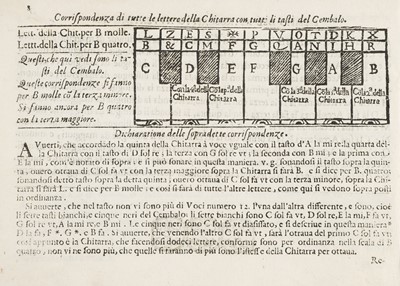 Corrispondenza di tutte le lettere della Chitarra con tutti li tasti del Cembalo.
Lett. della Chit. per B molle.
L Z E S P V O T D K X
Lett. della Chit. per B quatro.
B & C M F G Q A N I H R
Questi che qui vedi sono li tasti del Cembalo.
Queste corrispondenze si fanno per B molle cõ la terza minore.
Si fanno ancora per B quatro con la terza maggiore.
C D E F G A B
Dichiaratione delle sopradette corrispondenze.
AVerti, che accordato la quinta della Chitarra à voce vguale con il tasto d'A la mi re la quarta della Chitarra con il tasto di D sol re; la terza con G sol re vt; la seconda con B mi e la prima con
E la mi, com'è notato di sopra e si può sonare in questa maniera. v. g. sonandosi il tasto sopra la quinta, ouero ottaua di C sol fa vt con la terza maggiore sopra la Chitarra si farà B. e si dice per B. quatro
sonandosi detto tasto sopra la detta quinta, ouero ottaua di C sol fa vt con la terza minore, sopra la Chitarra si farà L. e si dice per B molle: e così si farà di tutte l'altre lettere, come quì si vedono sopra posti
in ordinanza.
Si auuerte, che nel tasto non vi sono più di Voci numero 12. Vna dall'altra differente, e sono, cioè
li sette tasti bianchi, e cinque neri del Cembalo. li sette bianchi sono C sol fa vt, D sol re, E la mi, F fa vt,
G sol re vt, A la mi re, e B mi. Le cinque neri sono C sol fa vt diasissato, e si descriue in questa maniera*
Si auuerte, che venendo l'altro C sol fa vt, sarà l'ottaua del primo C sol fa vt
così appunto è la Chitarra, che facendosi dodeci lettere, conforme sono per ordinanza nella scala di B
quatro, non vi ne sono più, che quelle si faranno di più sono l'istesse della Chitarra per ottaua.
Re-